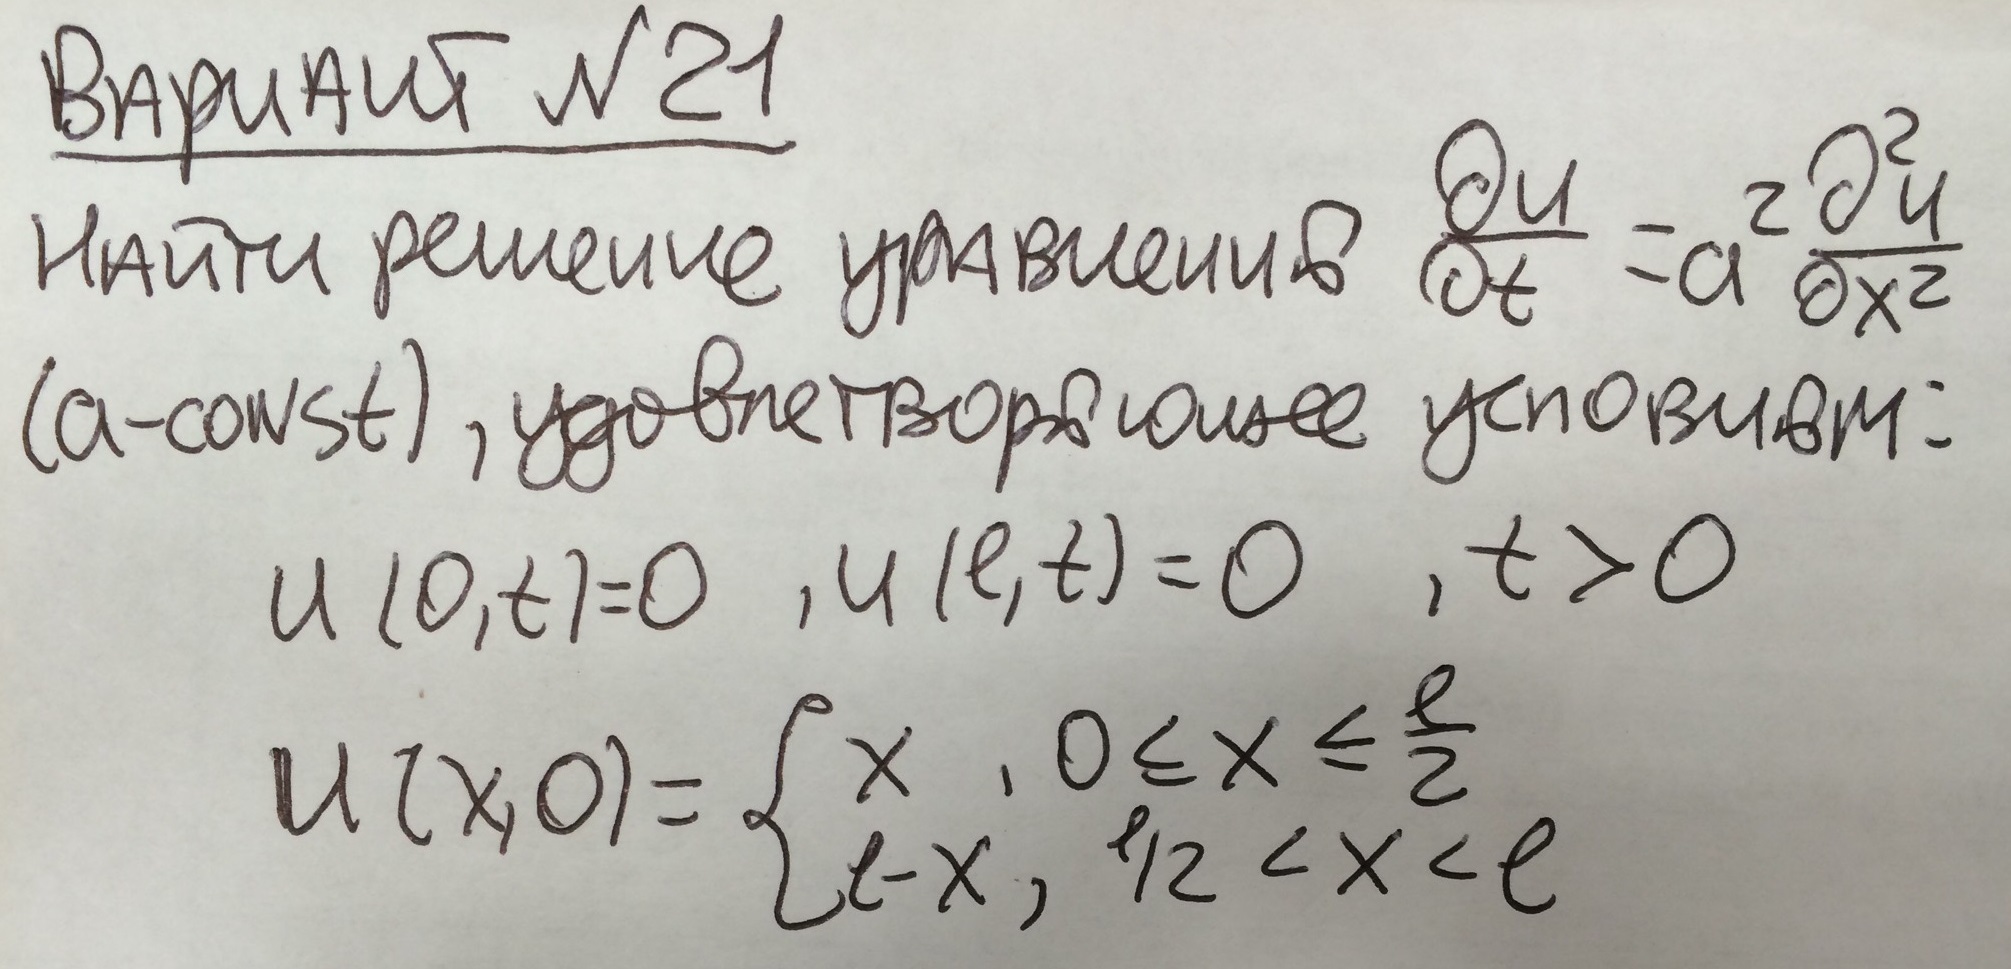 Вариант №21
Найти решение уравнения ∂u/∂t = a² ∂²u/∂x²
(a-const), удовлетворяющее условиям:
u(0,t)=0 , u(l,t)=0 , t>0
u(x,0)= { x , 0≤x≤l/2
l-x, l/2<x<l